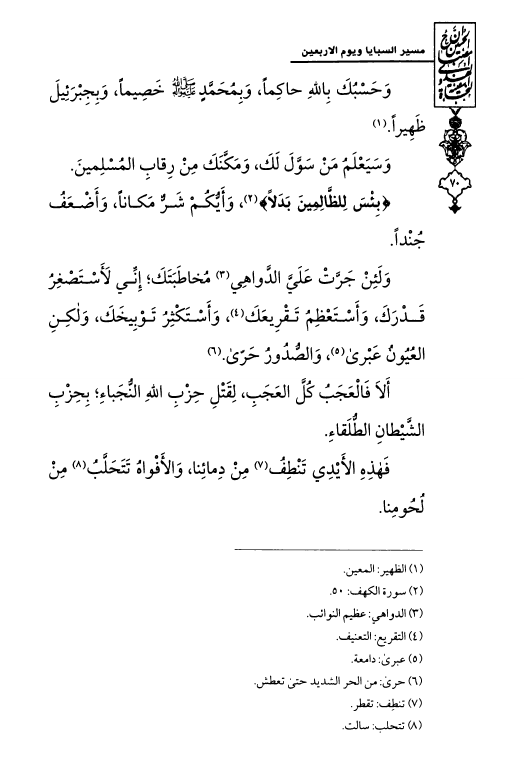 مسير السبايا ويوم الاربعين
٧٠
وَحَسْبُكَ بِاللهِ حاكِماً، وَبِمُحَمَّدٍ ﷺ خَصِيماً، وَبِجِبْرَئِيلَ
ظَهِيراً.(١)
وَسَيَعْلَمُ مَنْ سَوَّلَ لَكَ، وَمَكَّنَكَ مِنْ رِقابِ المُسْلِمينَ.
﴿بِئْسَ لِلظَّالِمِينَ بَدَلاً﴾(٢)، وَأَيُّكُمْ شَرٌّ مَكاناً، وَأَضْعَفُ
جُنْداً.
وَلَئِنْ جَرَّتْ عَلَيَّ الدَّواهِي(٣) مُخاطَبَتَكَ؛ إِنِّي لَأَسْتَصْغِرُ
قَدْرَكَ، وَأَسْتَعْظِمُ تَقْرِيعَكَ(٤)، وَأَسْتَكْثِرُ تَوْبِيخَكَ، وَلٰكِنِ
العُيُونُ عَبْرىٰ(٥)، وَالصُّدُورُ حَرّىٰ.(٦)
أَلاَ فَالْعَجَبُ كُلَّ العَجَبِ، لِقَتْلِ حِزْبِ اللهِ النُّجَباءِ؛ بِحِزْبِ
الشَّيْطانِ الطُّلَقاءِ.
فَهٰذِهِ الأَيْدِي تَنْطِفُ(٧) مِنْ دِمائِنا، وَالأَفْواهُ تَتَحَلَّبُ(٨) مِنْ
لُحُومِنا.
(١) الظهير: المعين.
(٢) سورة الكهف: ٥٠.
(٣) الدواهي: عظيم النوائب.
(٤) التقريع: التعنيف.
(٥) عبرىٰ: دامعة.
(٦) حرىٰ: من الحر الشديد حتىٰ تعطش.
(٧) تنطِف: تقطر.
(٨) تتحلب: سالت.